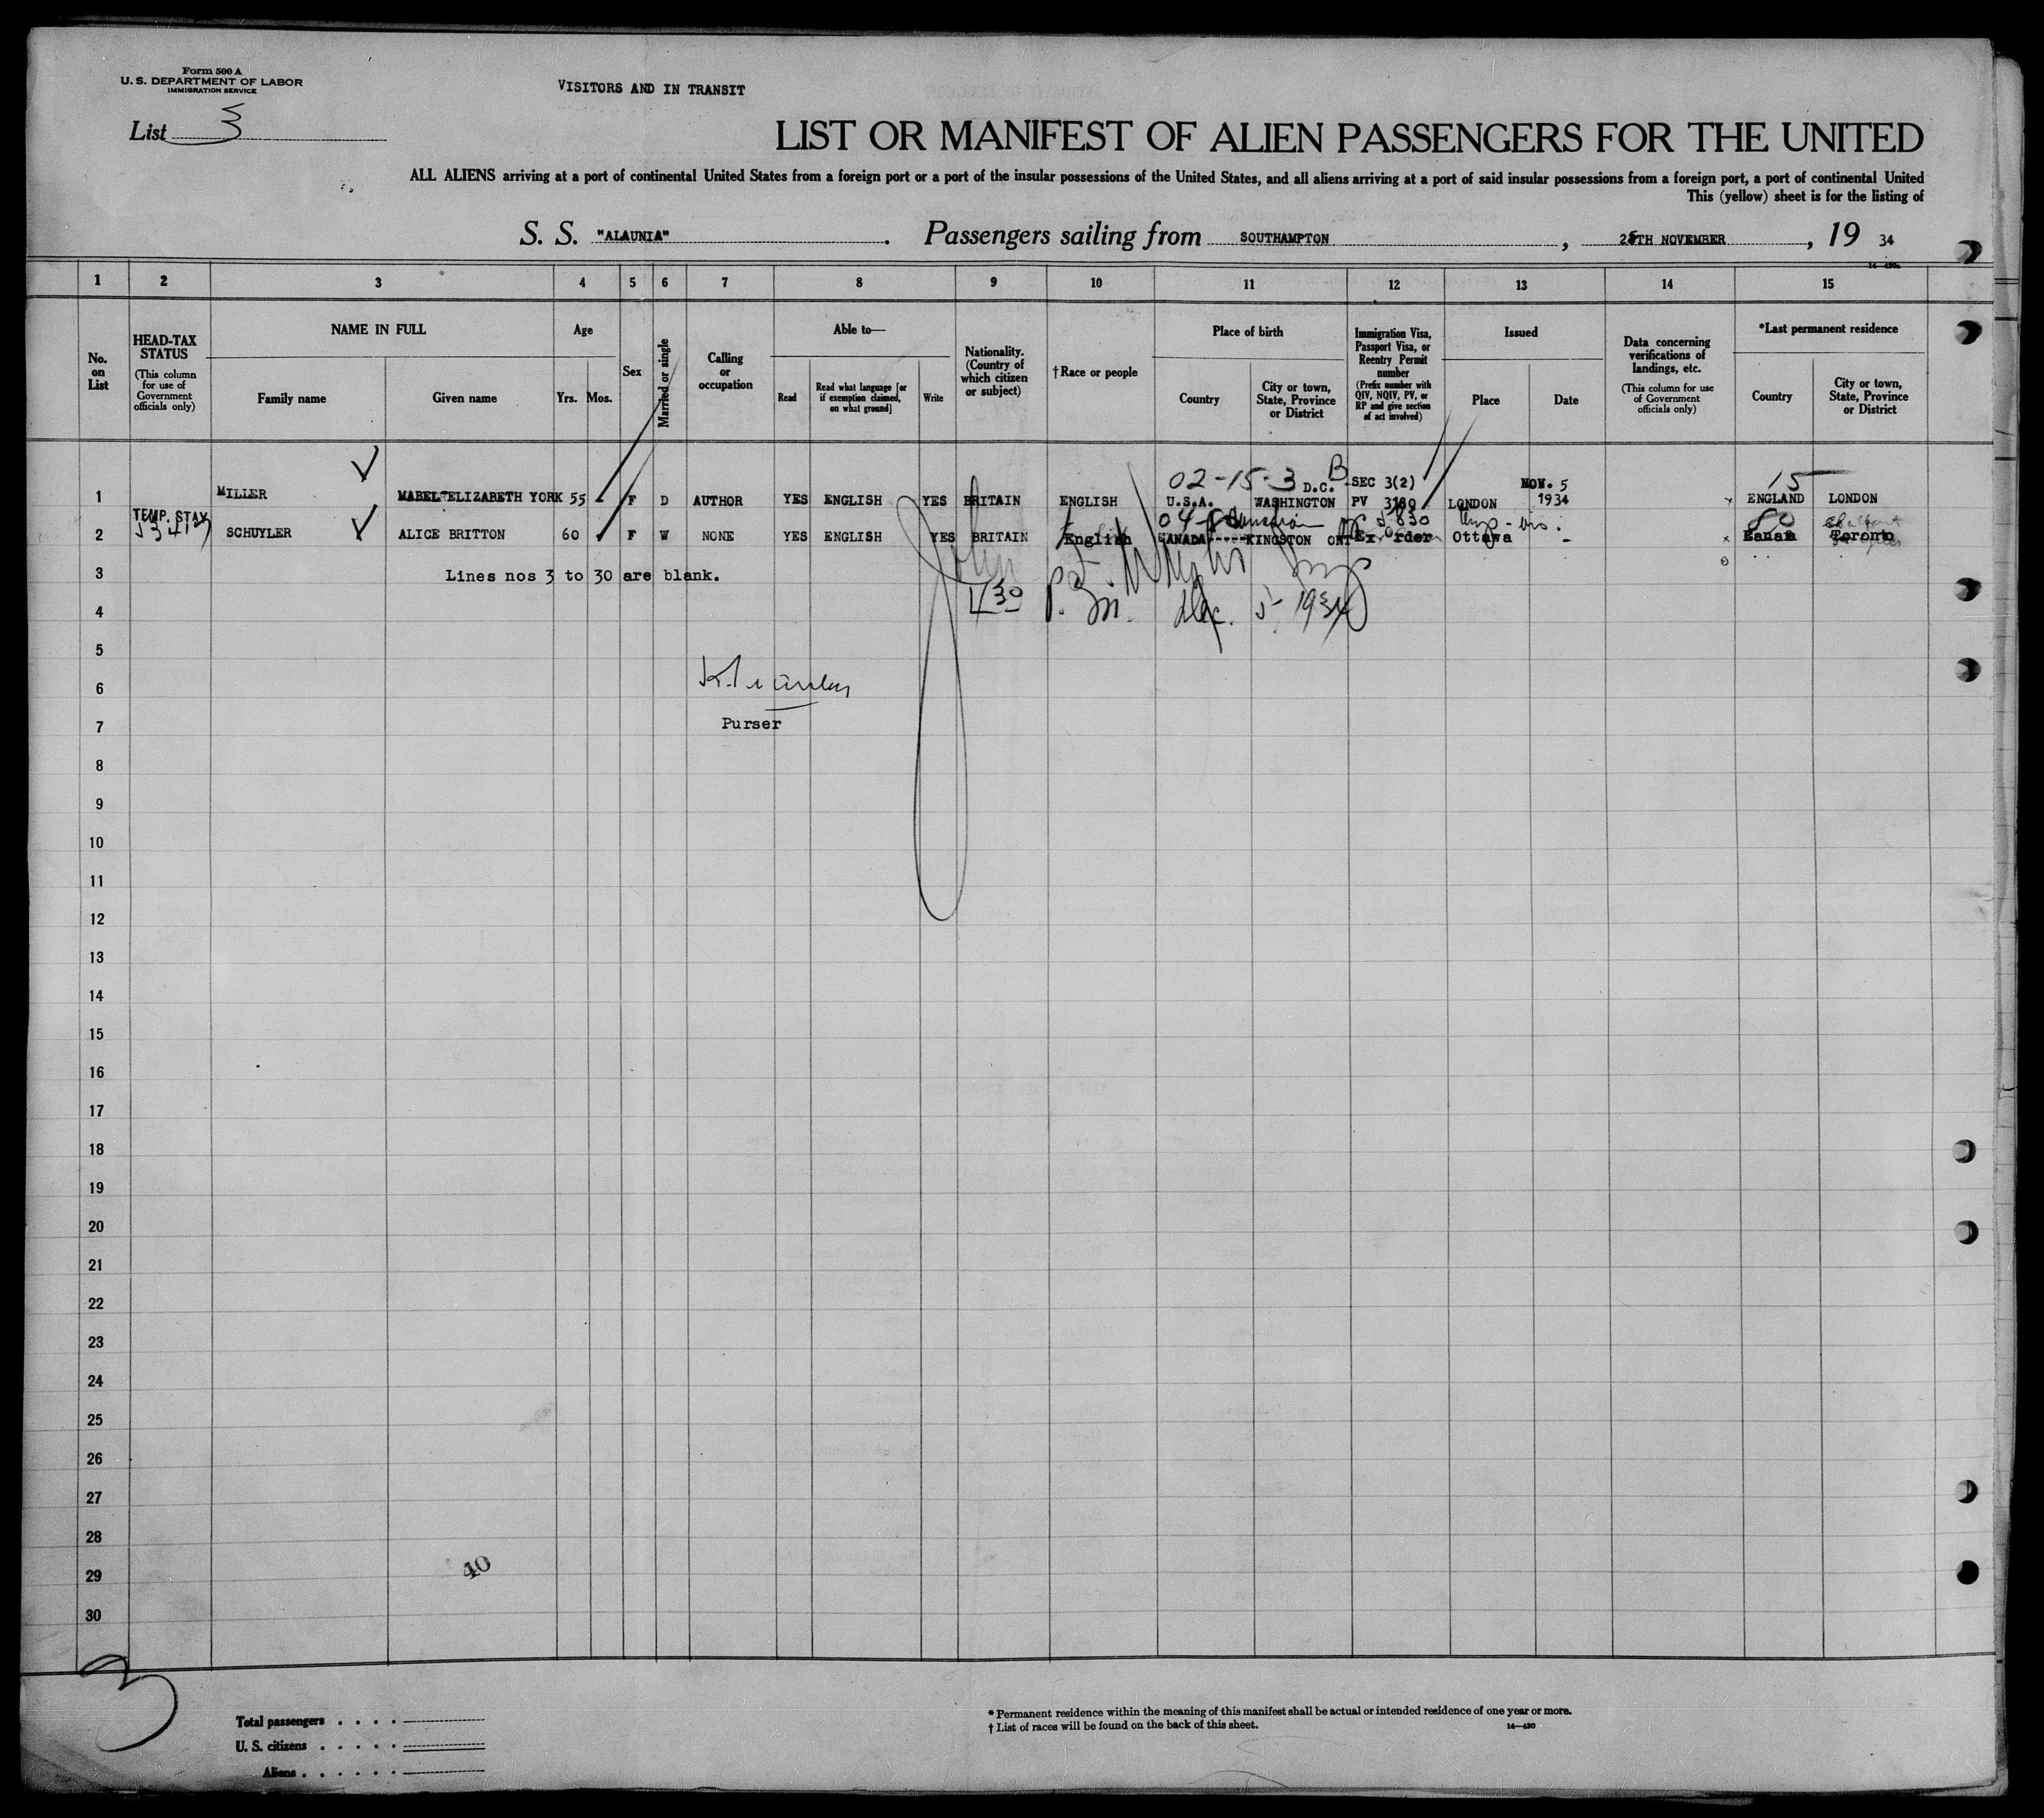 Form 500 A
U. S. DEPARTMENT OF LABOR
IMMIGRATION SERVICE
VISITORS AND IN TRANSIT
List 3
LIST OR MANIFEST OF ALIEN PASSENGERS FOR THE UNITED
ALL ALIENS arriving at a port of continental United States from a foreign port or a port of the insular possessions of the United States, and all aliens arriving at a port of said insular possessions from a foreign port, a port of continental United
This (yellow) sheet is for the listing of
S. S. "ALAUNIA". Passengers sailing from SOUTHAMPTON, NOVEMBER, 19 34
1 2 3 4 5 6 7 8 9 10 11 12 13 14 15
No. on List
HEAD-TAX STATUS
(This column for use of Government officials only)
NAME IN FULL
Family name
Given name
Age
Yrs. Mos.
Sex
Married or single
Calling or occupation
Able to—
Read
Read what language [or if exemption claimed, on what ground]
Write
Nationality. (Country of which citizen or subject)
†Race or people
Place of birth
Country
City or town, State, Province or District
Immigration Visa, Passport Visa, or Reentry Permit number
(Prefix number with QIV, NQIV, PV, or RP and give section of act involved)
Issued
Place
Date
Data concerning verifications of landings, etc.
(This column for use of Government officials only)
*Last permanent residence
Country
City or town, State, Province or District
02-15-3 B SEC 3(2) NOV. 5 15
1 MILLER MABEL ELIZABETH YORK 55 - F D AUTHOR YES ENGLISH YES BRITAIN ENGLISH U.S.A. WASHINGTON D.C. PV 3180 LONDON 1934 x ENGLAND LONDON
TEMP. STAY
2 SCHUYLER ALICE BRITTON 60 F W NONE YES ENGLISH YES BRITAIN English CANADA KINGSTON ONT Ex Order Ottawa - x Canada Toronto
3 Lines nos 3 to 30 are blank.
4 4 30 P. M. Dec. 5 1934
5
6
7 Purser
8
9
10
11
12
13
14
15
16
17
18
19
20
21
22
23
24
25
26
27
28
29 40
30
3
Total passengers
U. S. citizens
Aliens
* Permanent residence within the meaning of this manifest shall be actual or intended residence of one year or more.
† List of races will be found on the back of this sheet. 14—430